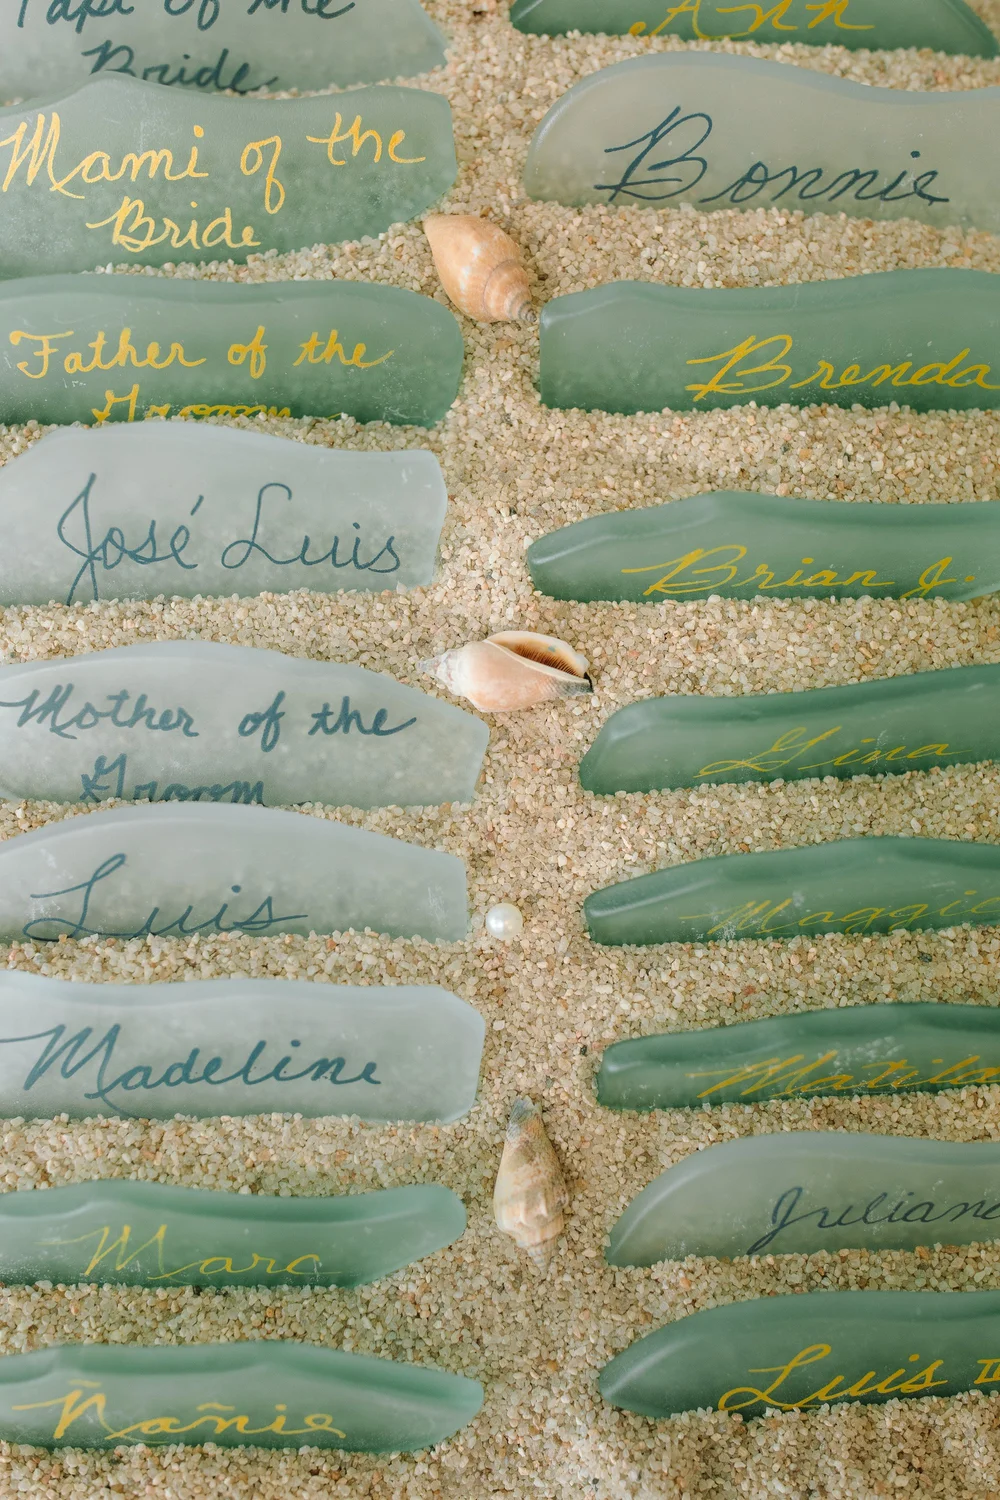 Papi of the
Bride
Mami of the
Bride
Father of the
Groom
José Luis
Mother of the
Groom
Luis
Madeline
Marc
Ñañie
Ann
Bonnie
Brenda
Brian J.
Gina
Maggie
Matilda
Juliana
Luis II